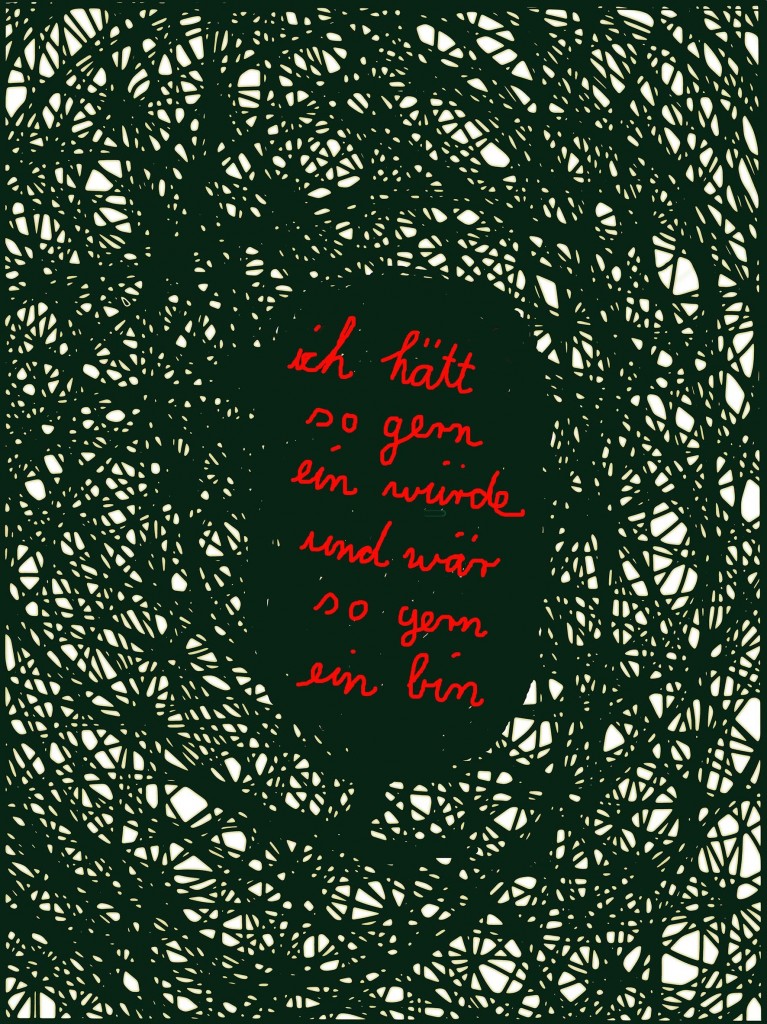 ich hätt
so gern
ein würde
und wär
so gern
ein bin